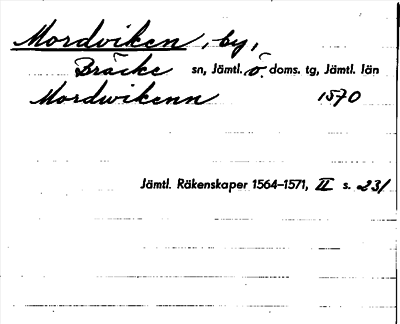 Mordviken, by,
Bräcke sn, Jämtl. Ö. doms. tg, Jämtl. län
Mordwikenn 1570
Jämtl. Räkenskaper 1564–1571, II s. 231